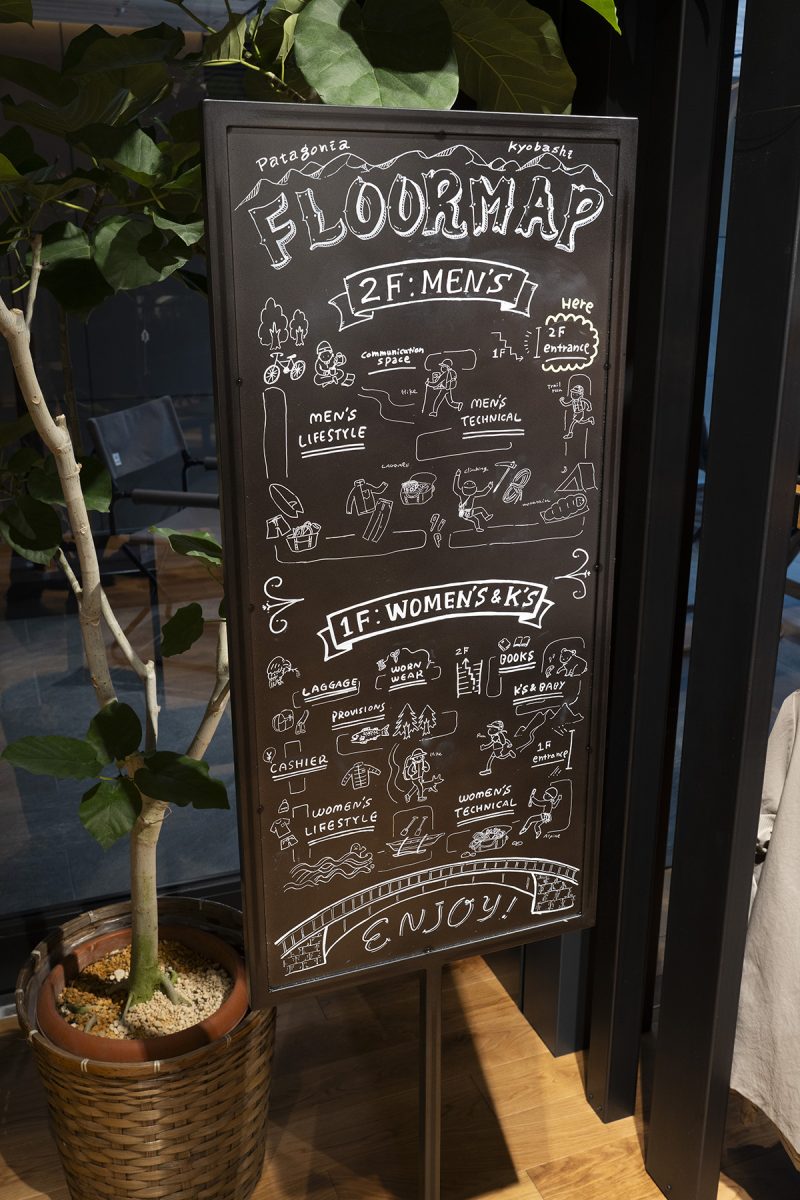 Patagonia Kyobashi
FLOORMAP
2F: MEN'S
Here
2F
entrance
1F
Communication
SPACE
Hike
Trail
run
MEN'S
LIFESTYLE
MEN'S
TECHNICAL
climbing
1F: WOMEN'S & K'S
2F
BOOKS
WORN
WEAR
LAGGAGE
K'S & BABY
PROVISIONS
Hike
1F
entrance
¥
CASHIER
WOMEN'S
LIFESTYLE
WOMEN'S
TECHNICAL
Alpine
ENJOY!